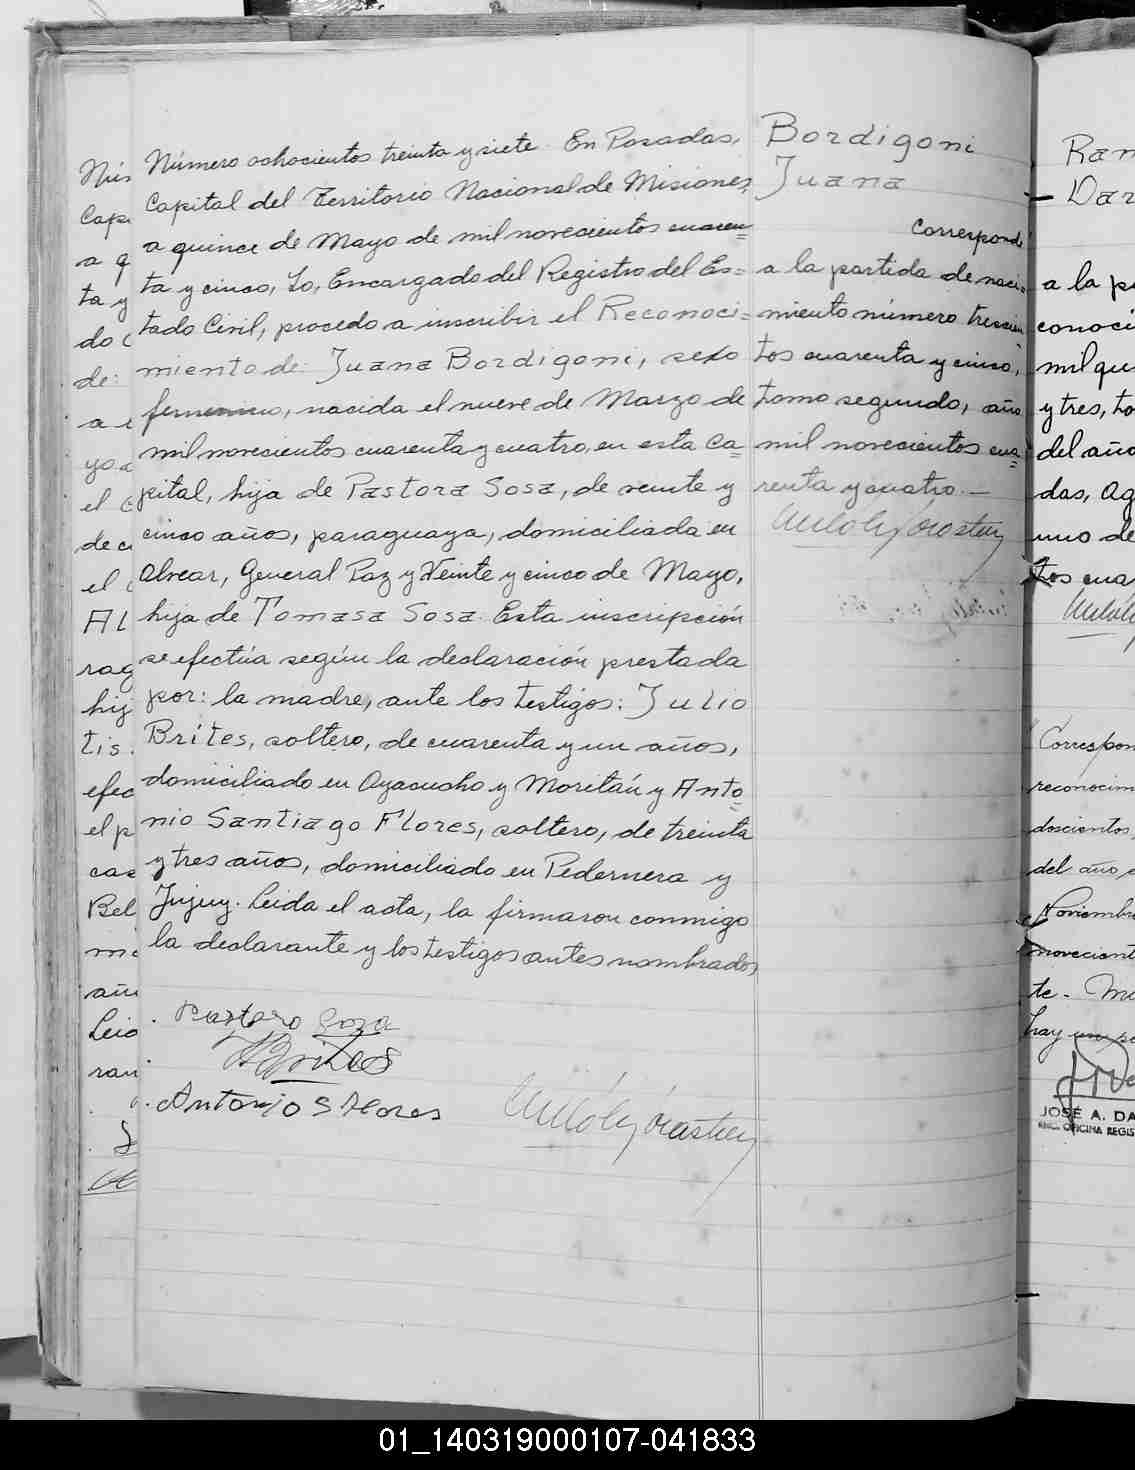 Número ochocientos treinta y siete. En Posadas,
Capital del Territorio Nacional de Misiones,
a quince de Mayo de mil novecientos cuaren=
ta y cinco, Yo, Encargado del Registro del Es=
tado Civil, procedo a inscribir el Reconoci=
miento de: Juana Bordigoni, sexo
femenino, nacida el nueve de Marzo de
mil novecientos cuarenta y cuatro, en esta Ca=
pital, hija de Pastora Sosa, de veinte y
cinco años, paraguaya, domiciliada en
Alvear, General Paz y Veinte y cinco de Mayo,
hija de Tomasa Sosa. Esta inscripción
se efectúa según la declaración prestada
por: la madre, ante los testigos: Julio
Brites, soltero, de cuarenta y un años,
domiciliado en Ayacucho y Moritán y Anto=
nio Santiago Flores, soltero, de treinta
y tres años, domiciliado en Pedernera y
Jujuy. Leida el acta, la firmaron conmigo
la declarante y los testigos antes nombrados
Pastora Sosa
Brites
Antonio S Flores
Bordigoni
Juana
Corresponde
a la partida de naci=
miento número trescien
tos cuarenta y cinco,
tomo segundo, año
mil novecientos cua=
renta y cuatro.—
Nú
Cap
a q
ta y
do
de:
a
yo
el
de c
el
Al
rag
hij
tis
efec
el p
cas
Bel
añ
Leid
ran
Ram
Dar
a la p
conoci
mil qu
y tres, to
del año
das, Ag
uno de
tos cua
Correspon
reconocim
doscientos,
del año
Noviembre
novecient
te.
hay un se
JOSÉ A. DA
ENC. OFICINA REGIS
01_140319000107-041833